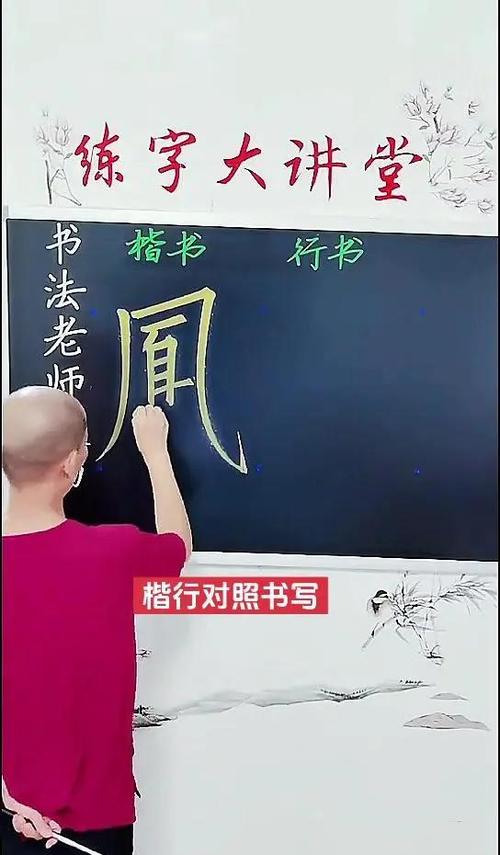 练字大讲堂
书法老师
楷书 行书
楷行对照书写